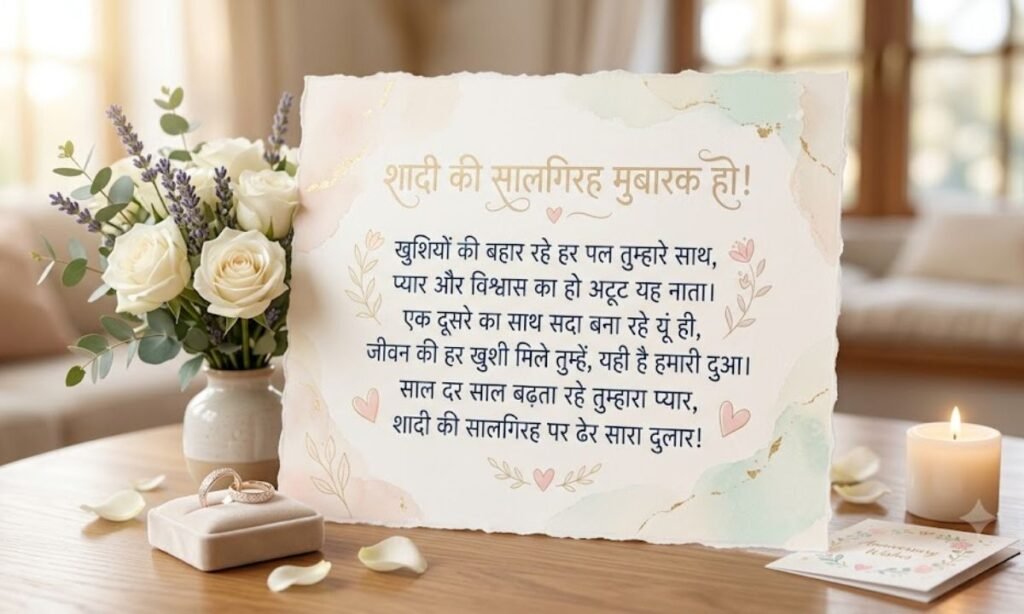 शादी की सालगिरह मुबारक हो!
खुशियों की बहार रहे हर पल तुम्हारे साथ,
प्यार और विश्वास का हो अटूट यह नाता।
एक दूसरे का साथ सदा बना रहे यूं ही,
जीवन की हर खुशी मिले तुम्हें, यही है हमारी दुआ।
साल दर साल बढ़ता रहे तुम्हारा प्यार,
शादी की सालगिरह पर ढेर सारा दुलार!
Anniversary
Wishes